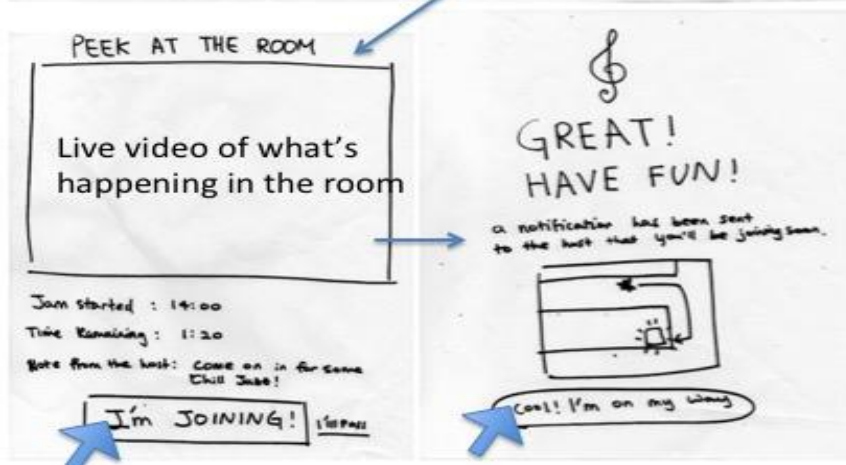 PEEK AT THE ROOM
Live video of what's
happening in the room
Jam started : 14:00
Time Remaining : 1:20
Note from the host: Come on in for some
Chill Jazz!
I'm JOINING!
I'll Pass
GREAT!
HAVE FUN!
a notification has been sent
to the host that you'll be joining soon.
Cool! I'm on my way